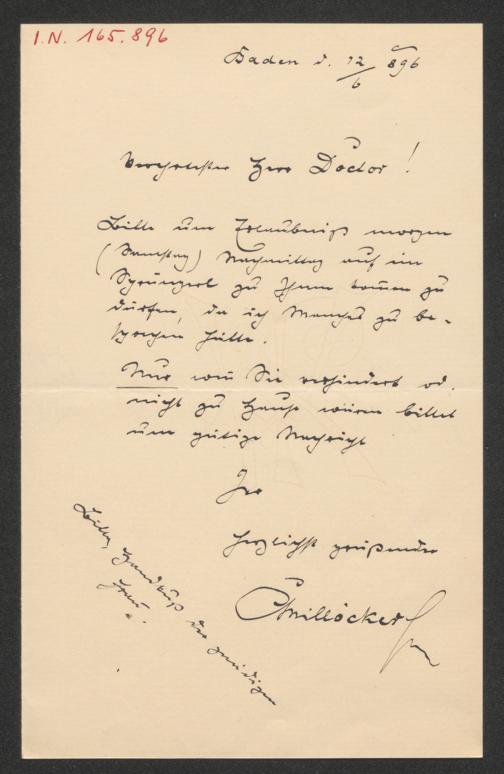 I.N. 165.896
Baden d. 12/6 896
Verehrtester Herr Doctor!
Bitte um Erlaubniß morgen
(Samstag) Nachmittag auf ein
Sprüngerl zu Ihnen kom̄en zu
dürfen, da ich Manches zu be-
sprechen hätte.
Nur wen̄ Sie verhindert od.
nicht zu Hause wären bittet
um gütige Nachricht
Ihr
herzlichst grüßender
CMillöcker
Bitte, Handkuß der gnädigen
Frau.